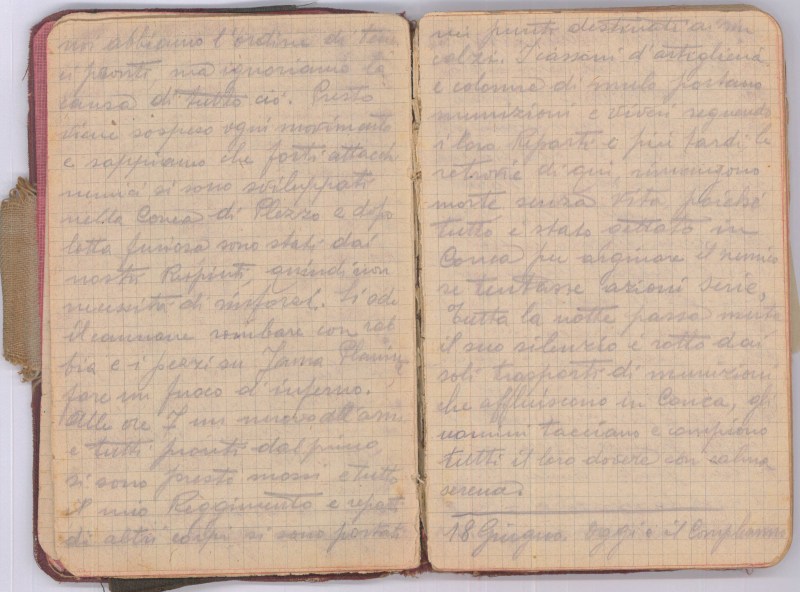 noi abbiamo l'ordine di tener
ci pronti, ma ignoriamo la
causa di tutto ciò. Presto
viene sospeso ogni movimento
e sappiamo che forti attacchi
nemici si sono sviluppati
nella Conca di Plezzo e dopo
lotta furiosa sono stati dai
nostri Respinti, quindi non
necessita di rinforzi. Si ode
il cannone rombare con rab
bia e i pezzi su Jama Planina
fare un fuoco d'inferno.
Alle ore 7 un nuovo all'armi
e tutti pronti dal primo,
si sono presto mossi e tutto
il mio Reggimento e reparti
di altri corpi si sono portati
nei punti destinati ai rin
calzi. I cassoni d'artiglieria
e colonne di mulo portano
munizioni e viveri seguendo
i loro Riparti e più tardi le
retrovie di qui, rimangono
morte senza vita poiché
tutto è stato gettato in
Conca per arginare il nemico
se tentasse azioni serie.
Tutta la notte passa mentre
il suo silenzio è rotto dai
soli trasporti di munizioni
che affluiscono in Conca, gli
uomini tacciano e compiono
tutti il loro dovere con calma
serena.
18 Giugno. Oggi è il Compleanno